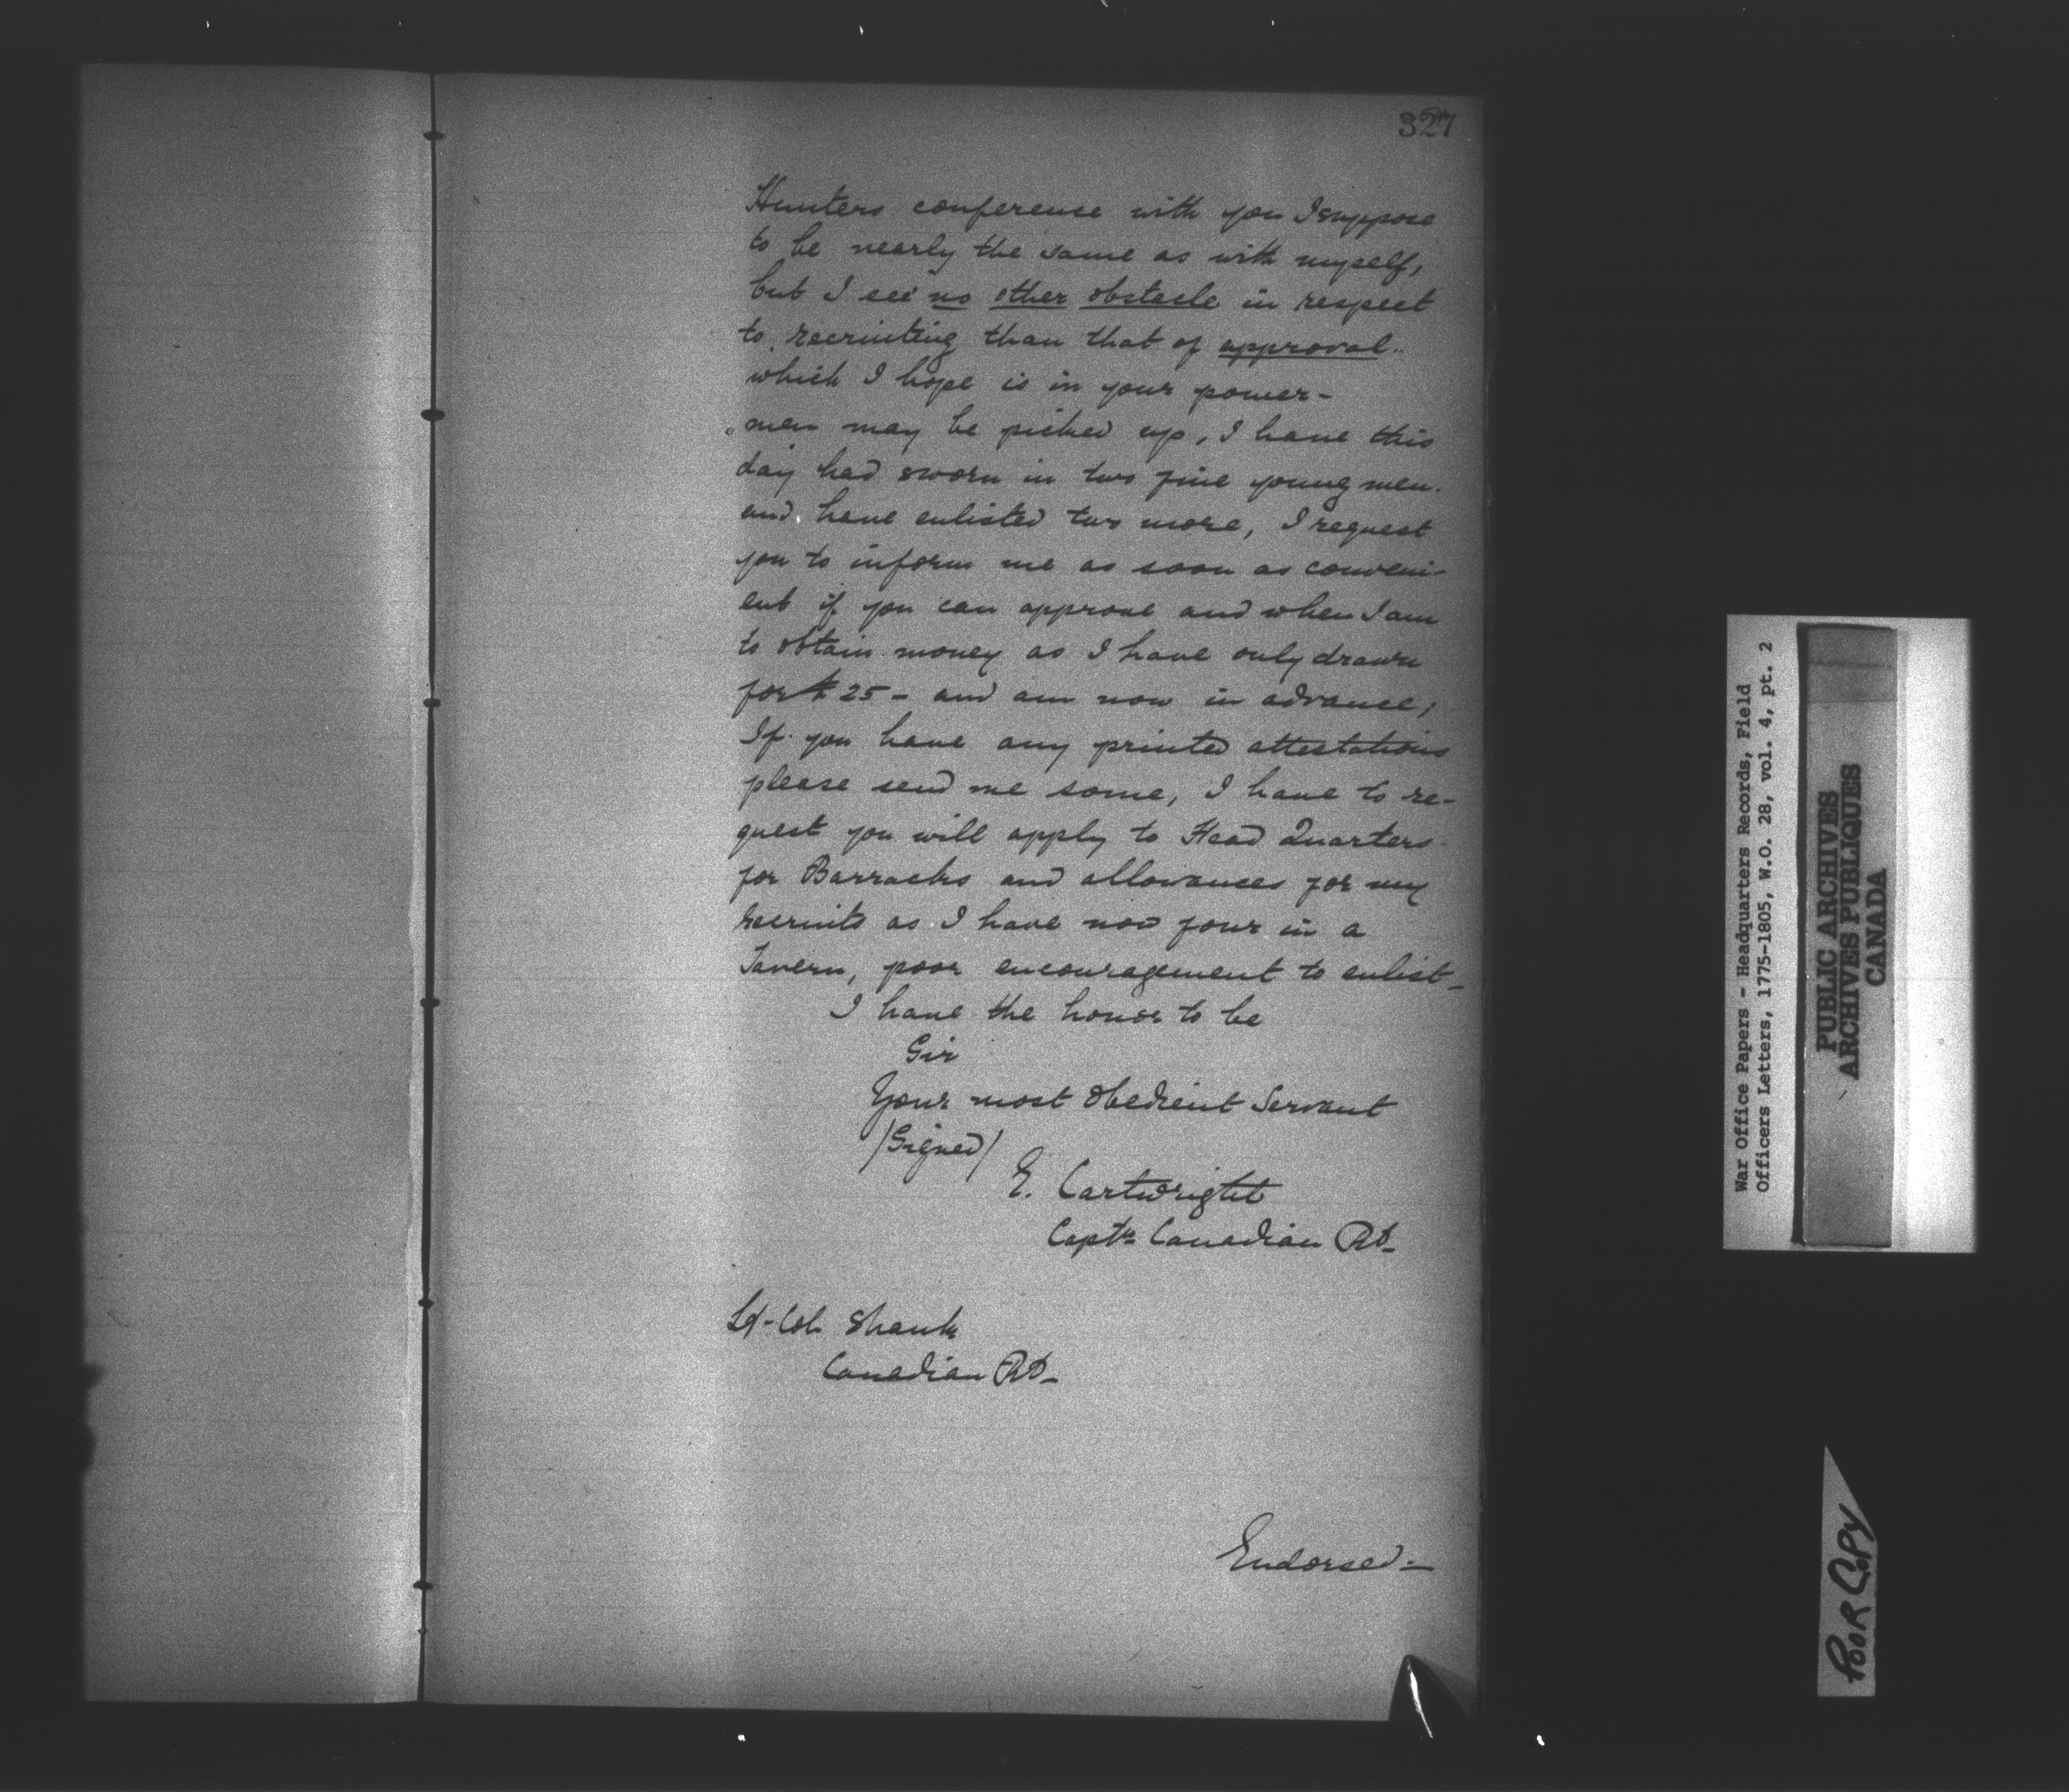 327
Hunters conference with you I suppose
to be nearly the same as with myself,
but I see no other obstacle in respect
to recruiting than that of approval..
which I hope is in your power-
men may be picked up, I have this
day had sworn in two fine young men.
and have enlisted two more, I request
you to inform me as soon as conveni-
ent if you can approve and when I am
to obtain money as I have only drawn
for £25- and am now in advance;
If you have any printed attestations
please send me some, I have to re-
quest you will apply to Head Quarters
for Barracks and allowances for my
recruits as I have now four in a
Tavern, poor encouragement to enlist_
I have the honor to be
Sir
Your most Obedient Servant
/Signed/
E. Cartwright
Captn Canadian Rt_
Lt-Col Shank
Canadian Rt_
Endorsed-
War Office Papers - Headquarters Records, Field
Officers Letters, 1775-1805, W.O. 28, vol. 4, pt. 2
PUBLIC ARCHIVES
ARCHIVES PUBLIQUES
CANADA
POOR COPY